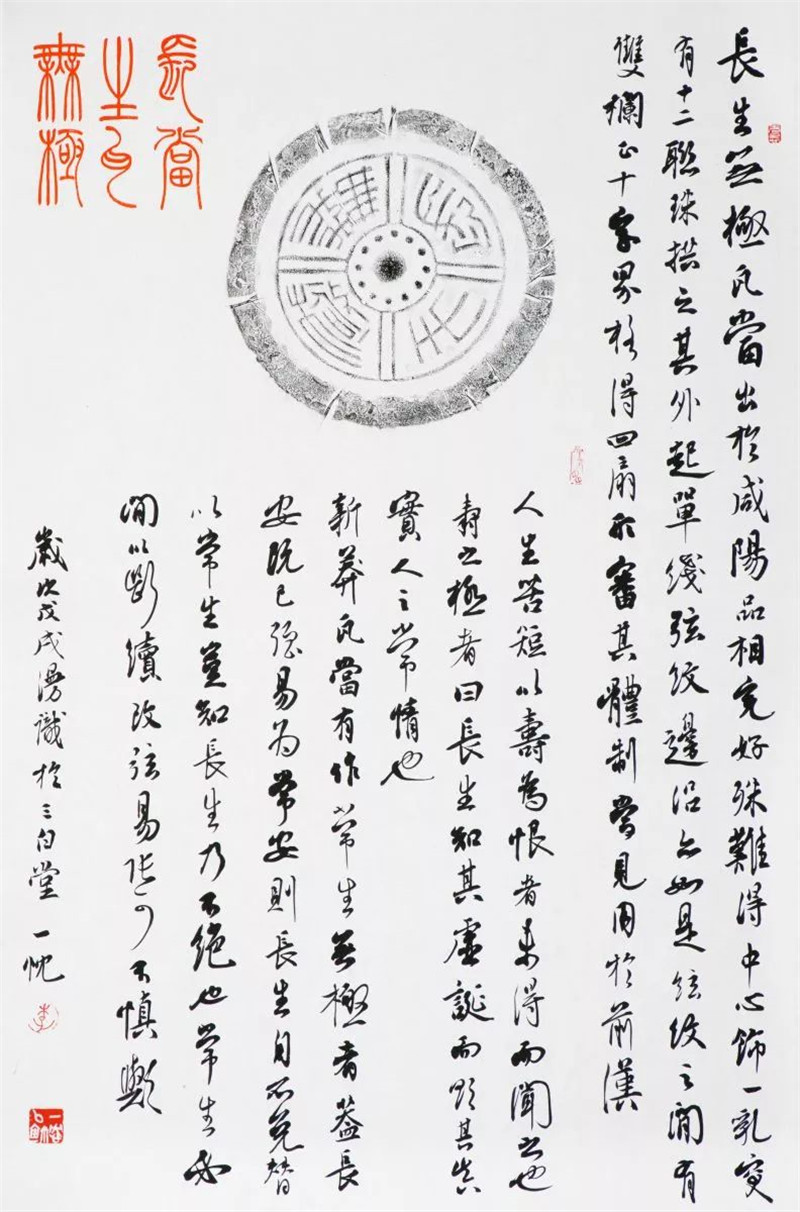 長生無極瓦當
長生無極
長生無極瓦當出於咸陽品相完好殊難得中心飾一乳突
有十二聯珠拱之其外起單綫弦紋邊沿亦如是弦紋之間有
雙欄正十字界格得四扇形審其體制當見用於前漢
人生苦短以壽為恨者未得而聞之也
壽之極者曰長生知其虛誕而其
實人之常情也
新莽瓦當有作常生無極者蓋長
安既已強易為常安則長生自不免替
以常生豈知長生乃不絕也常生
間以斷續改弦易張可不慎歟
歲次戊戌漫識於三白堂一忱